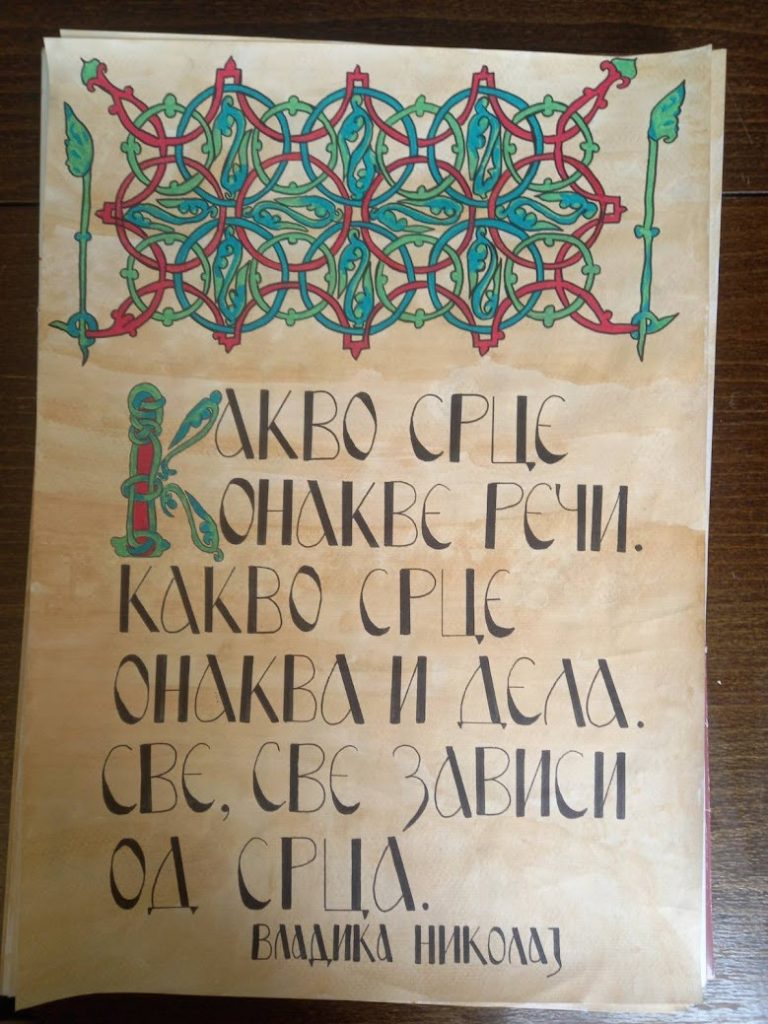 КАКВО СРЦЕ
ОНАКВЕ РЕЧИ.
КАКВО СРЦЕ
ОНАКВА И ДЕЛА.
СВЕ, СВЕ ЗАВИСИ
ОД СРЦА.
ВЛАДИКА НИКОЛАЈ